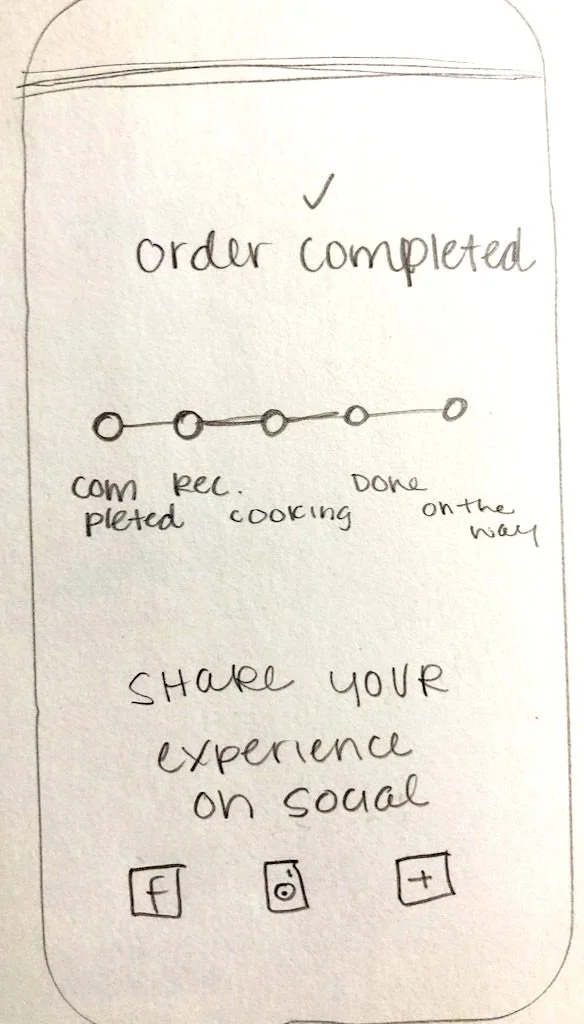 ✓
order completed
com Rec. Done
pleted cooking on the
way
SHARE YOUR
experience
on social
f +